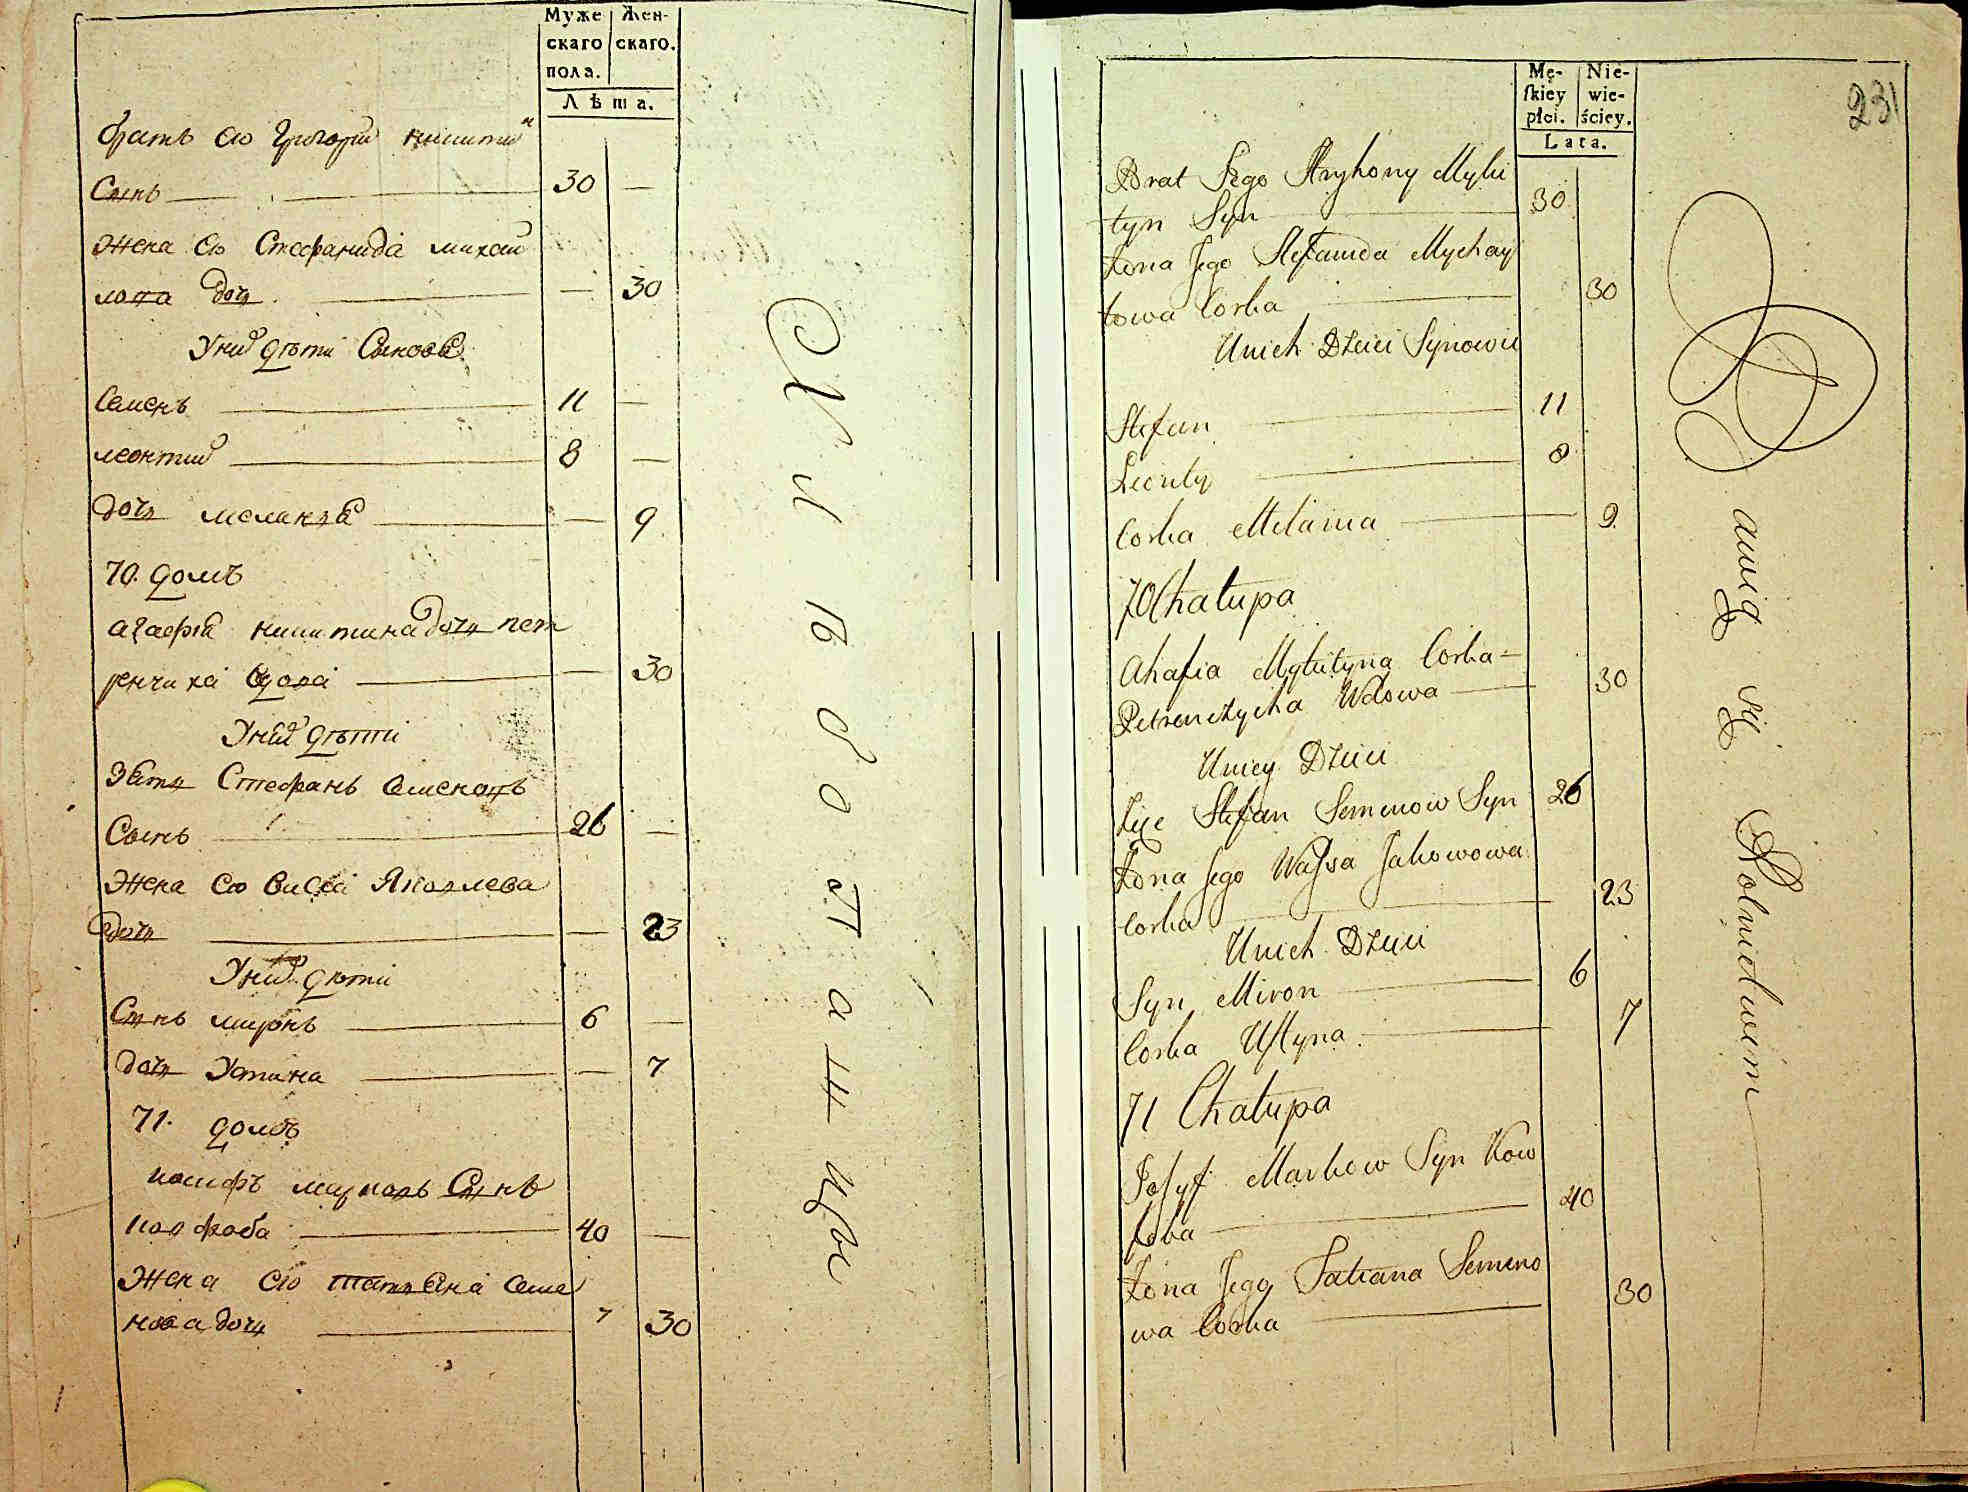 Муже
скаго
пола.
Жен-
скаго.
Лѣта.
братъ его григорій никитин
Сынъ 30 —
жена его Стефанида михаи
лова дочь — 30
У них дѣти Синове
Семенъ 11 —
леонтий 8 —
дочь меланія — 9
70. домъ
агафія никитина дочь пет
ренчиха вдова — 30
У ний дѣти
Зять Стефанъ Семеновъ
Сынъ 26 —
Жена его Васса Яковлева
дочь — 23
У них дѣти
Сынъ миронъ 6 —
дочь Устина — 7
71. домъ
иосифъ марковъ Сынъ
ковфоба 40 —
Жена его татьяна Семе
нова дочь 30
Хлѣбопашцы
231
Mę-
skiey
płci.
Nie-
wie-
ściey.
Lata.
Brat Jego Hryhory Myki
tyn Syn 30
Zona Jego Stefanida Mychay
łowa Corka 30
U nich Dzieci Synowie
Stefan 11
Leonty 8
Corka Melania 9
70 Chałupa
Ahafia Mykityna Corka
Petrenczycha Wdowa 30
U niey Dzieci
Zięć Stefan Semenow Syn 26
Zona Jego Wassa Jakowowa
Corka 23
U nich Dzieci
Syn Miron 6
Corka Ustyna 7
71 Chałupa
Josyf Markow Syn Kow
foba 40
Zona Jego Tatiana Semeno
wa Corka 30
Bawią się Rolnictwem